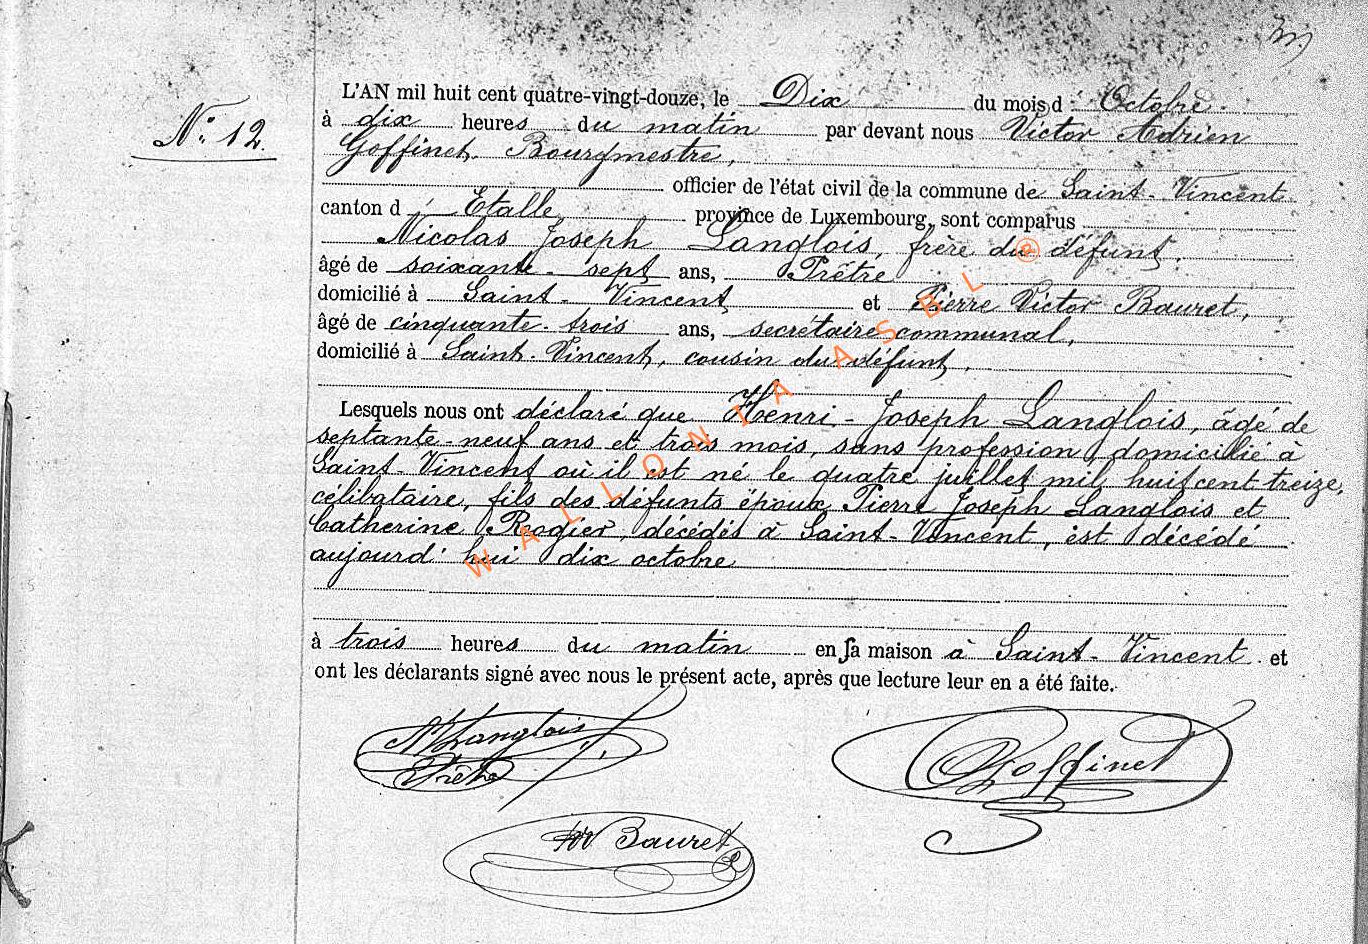 L'AN mil huit cent quatre-vingt-douze, le Dix du mois d'Octobre.
Nº 12.
à dix heures du matin par devant nous Victor Adrien
Goffinet. Bourgmestre,
officier de l'état civil de la commune de Saint-Vincent
canton d'Etalle, province de Luxembourg, sont comparus
Nicolas Joseph Langlois, frère du défunt.
âgé de soixante-sept ans, Prêtre
domicilié à Saint-Vincent et Pierre Victor Bauret,
âgé de cinquante-trois ans, secrétaire communal,
domicilié à Saint-Vincent, cousin du défunt,
Lesquels nous ont déclaré que Henri-Joseph Langlois, âgé de
septante-neuf ans et trois mois, sans profession, domicilié à
Saint-Vincent où il est né le quatre juillet mil huit cent treize,
célibataire, fils des défunts époux Pierre Joseph Langlois et
Catherine Rogier, décédés à Saint-Vincent, est décédé
aujourd'hui dix octobre
à trois heures du matin en sa maison à Saint-Vincent et
ont les déclarants signé avec nous le présent acte, après que lecture leur en a été faite.
Langlois
Prêtre
Goffinet
Bauret
WALLONIA ASBL @